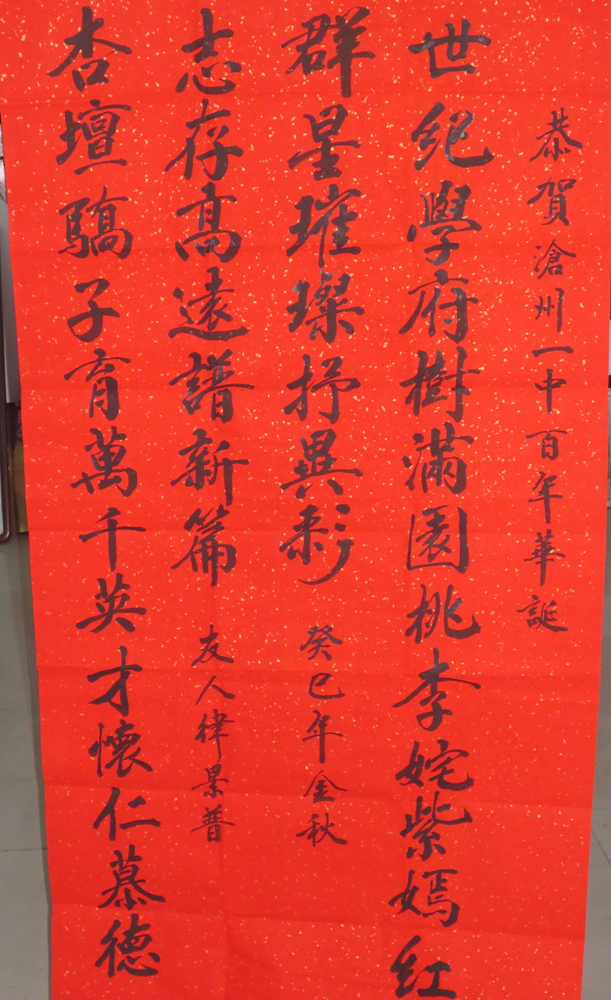 恭賀滄州一中百年華誕
世紀學府樹滿園桃李姹紫嫣紅
群星璀璨抒異彩
癸巳年金秋
杏壇驕子育萬千英才懷仁慕德
志存高遠譜新篇
友人律景普